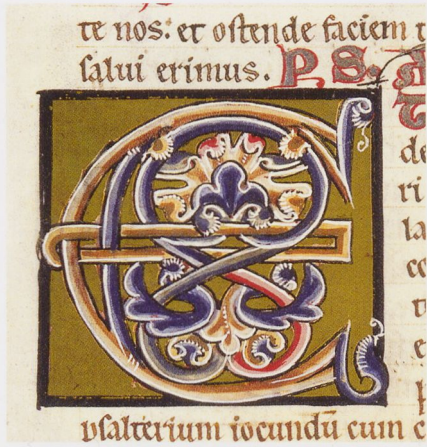 te nos: et ostende faciem t
salui erimus. PS.
E
de
ri
la
co
t
e
psalterium iocundū cum c